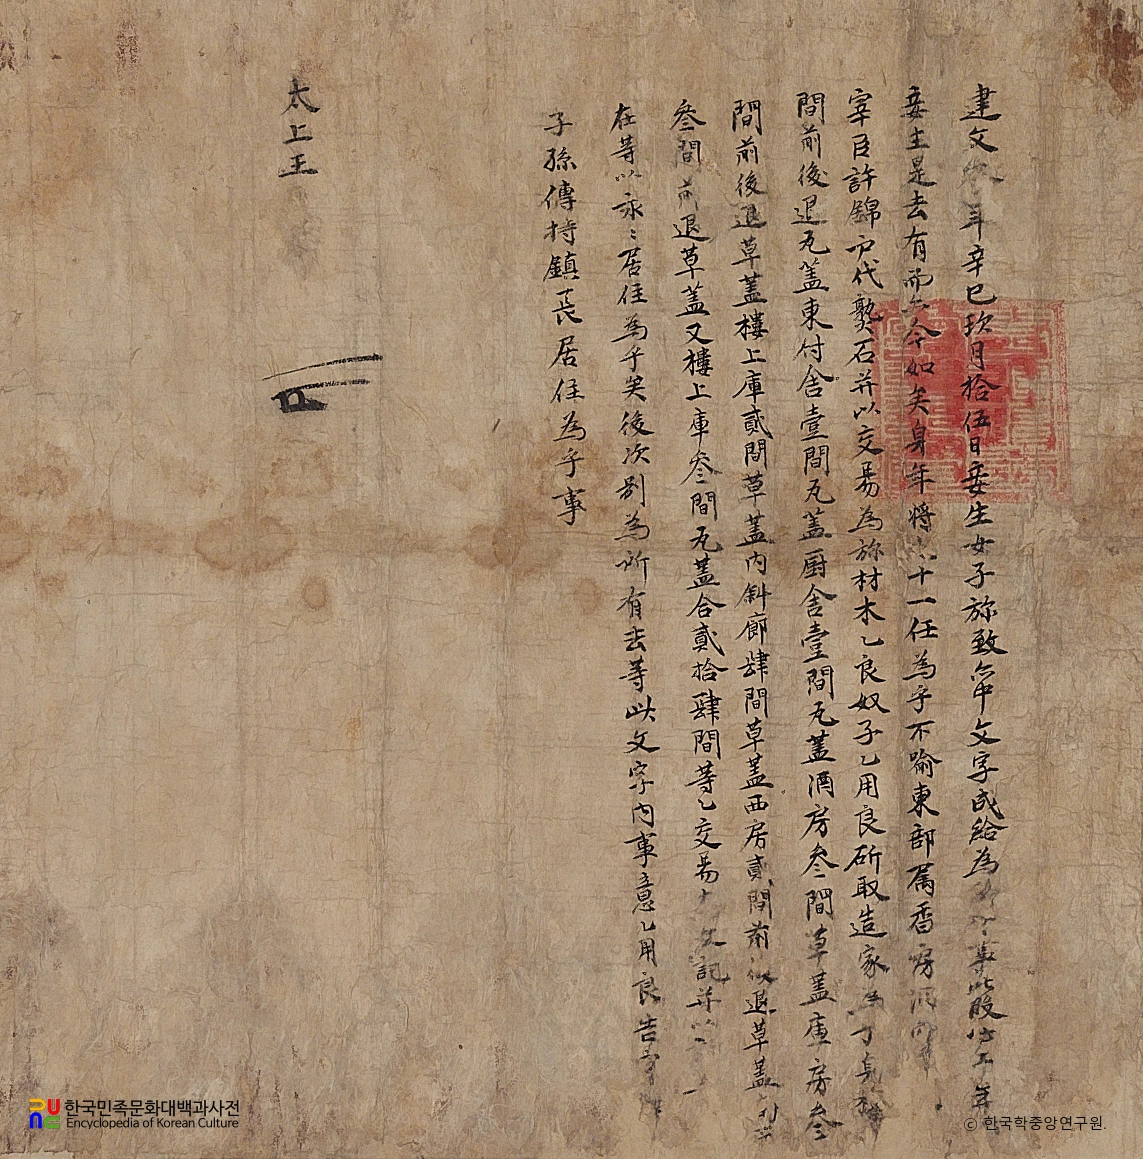 建文年辛巳玖月拾伍日妾生女子旀致亦中文字成給為事此段
妾主是去有而亦今如矣身年將十一任為乎不喻東部屬香房
宰臣許錦戶代熟石并以交易為旀材木乙良奴子乙用良斫取造家
間前後退瓦蓋東付舍壹間瓦蓋廚舍壹間瓦蓋酒房叁間草蓋庫房叁
間前後退草蓋樓上庫貳間草蓋內斜廊肆間草蓋西房貳間前後退草蓋
叁間前退草蓋又樓上庫叁間瓦蓋合貳拾肆間等乙交易記并以
在等以永〻居住為乎矣後次別為所有去等此文字內事意乙用良告
子孫傳持鎮長居住為乎事
太上王
한국민족문화대백과사전
Encyclopedia of Korean Culture
ⓒ 한국학중앙연구원.